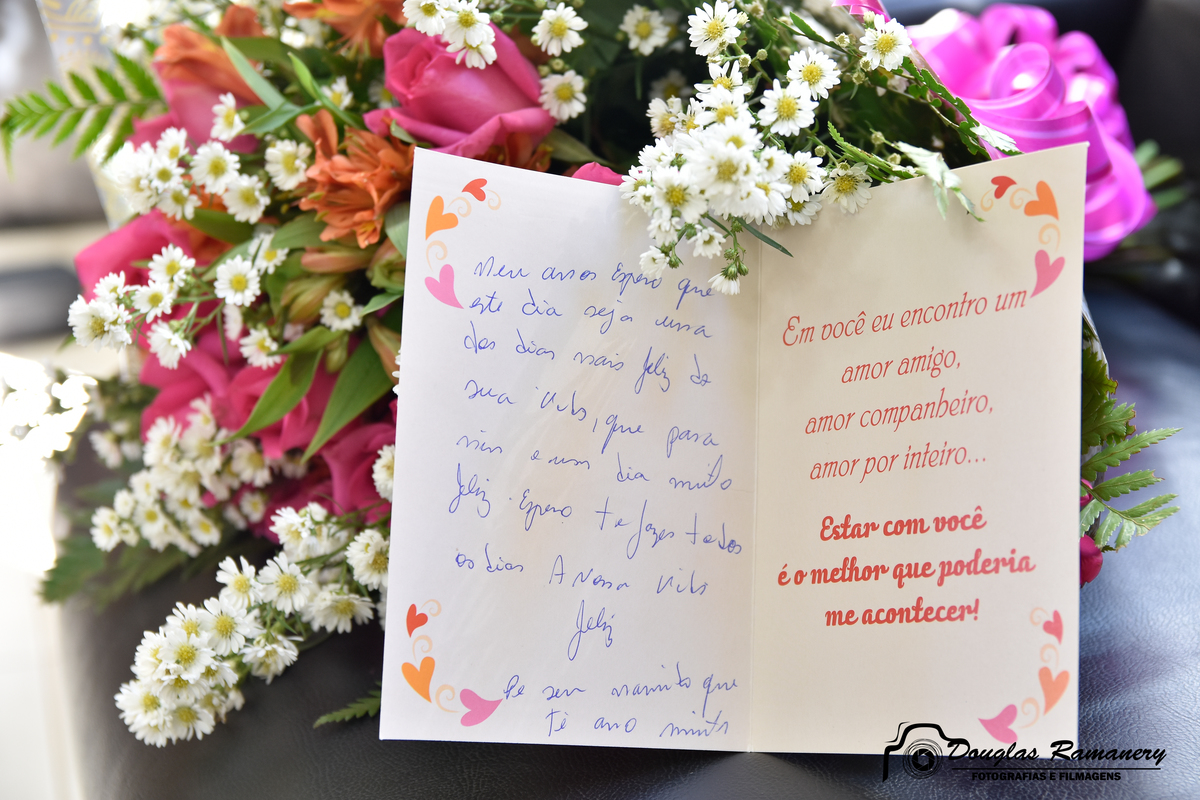 Meu amor Espero que
este dia seja uma
dos dias mais feliz da
sua vida, que para
mim e um dia muito
feliz. Espero te fazer todos
os dias A nossa vida
feliz
De seu que
te amo muito
Em você eu encontro um
amor amigo,
amor companheiro,
amor por inteiro...
Estar com você
é o melhor que poderia
me acontecer!
Douglas Ramanery
FOTOGRAFIAS E FILMAGENS